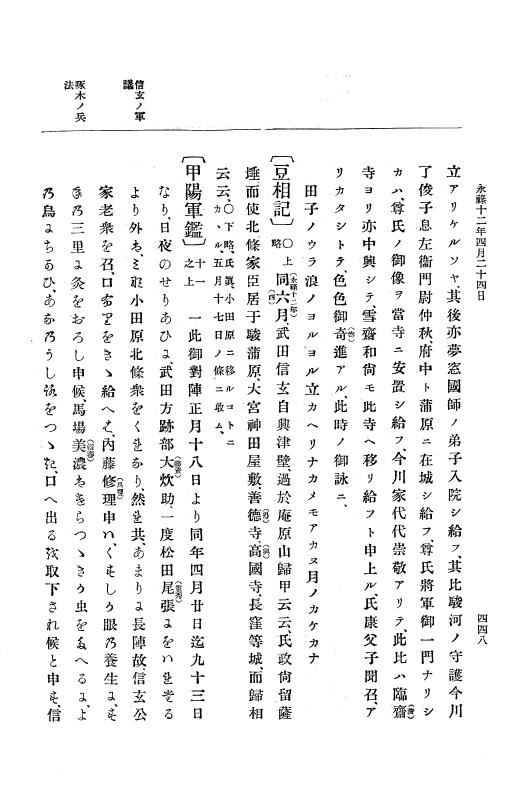 永祿十二年四月二十四日
四四八
立アリケルソヤ、其後亦夢窓國師ノ弟子入院シ給フ、其比駿河ノ守護今川
了俊子息左衞門尉仲秋、府中ト蒲原ニ在城シ給フ、尊氏將軍御一門ナリシ
カハ、尊氏ノ御像ヲ當寺ニ安置シ給フ、今川家代代崇敬アリテ、此比ハ臨齋(濟)
寺ヨリ亦中興シテ、雪齋和尙モ此寺ヘ移リ給フト申上ル、氏康父子聞召、ア
リカタシトテ色色御奇(寄)進アル、此時ノ御詠ニ、
田子ノウラ浪ノヨルヨル立カヘリナカメモアカヌ月ノカケカナ
〔豆相記〕〇上略同(永祿十二年)六(四)月、武田信玄自興津壁、過於庵原山歸甲云云、氏政尙留薩
埵而使北條家臣居于駿蒲原、大宮神田屋敷、善德(得)寺高(興)國寺、長窪等城、而歸相
云云、〇下略、氏眞、小田原ニ移ルコトニカヽル、五月十七日ノ條ニ收ム、
〔甲陽軍鑑〕十一之上 一此御對陣正月十八日より同年四月廿日迄九十三日
なり、日夜のせりあひよ、武田方跡部大(勝資)炊助、一度松田尾(憲秀)張よをいせゞる
より外も、みな小田原北條衆をくをかり、然を共、あまりよ長陣故、信玄公
信玄ノ軍議
家老衆を召、口右耳をきゝ給へと、內藤修(昌豐)理申ハ、くもしう眼乃養生よ、も
啄木ノ兵法
き乃三里よ灸をおろし申候、馬場美(信春)濃もきらつゝきう虫をゑへるよ、よ
乃鳥よちるひ、あな乃うし铙をつゝた、口へ出る铙取下され候と申も、信